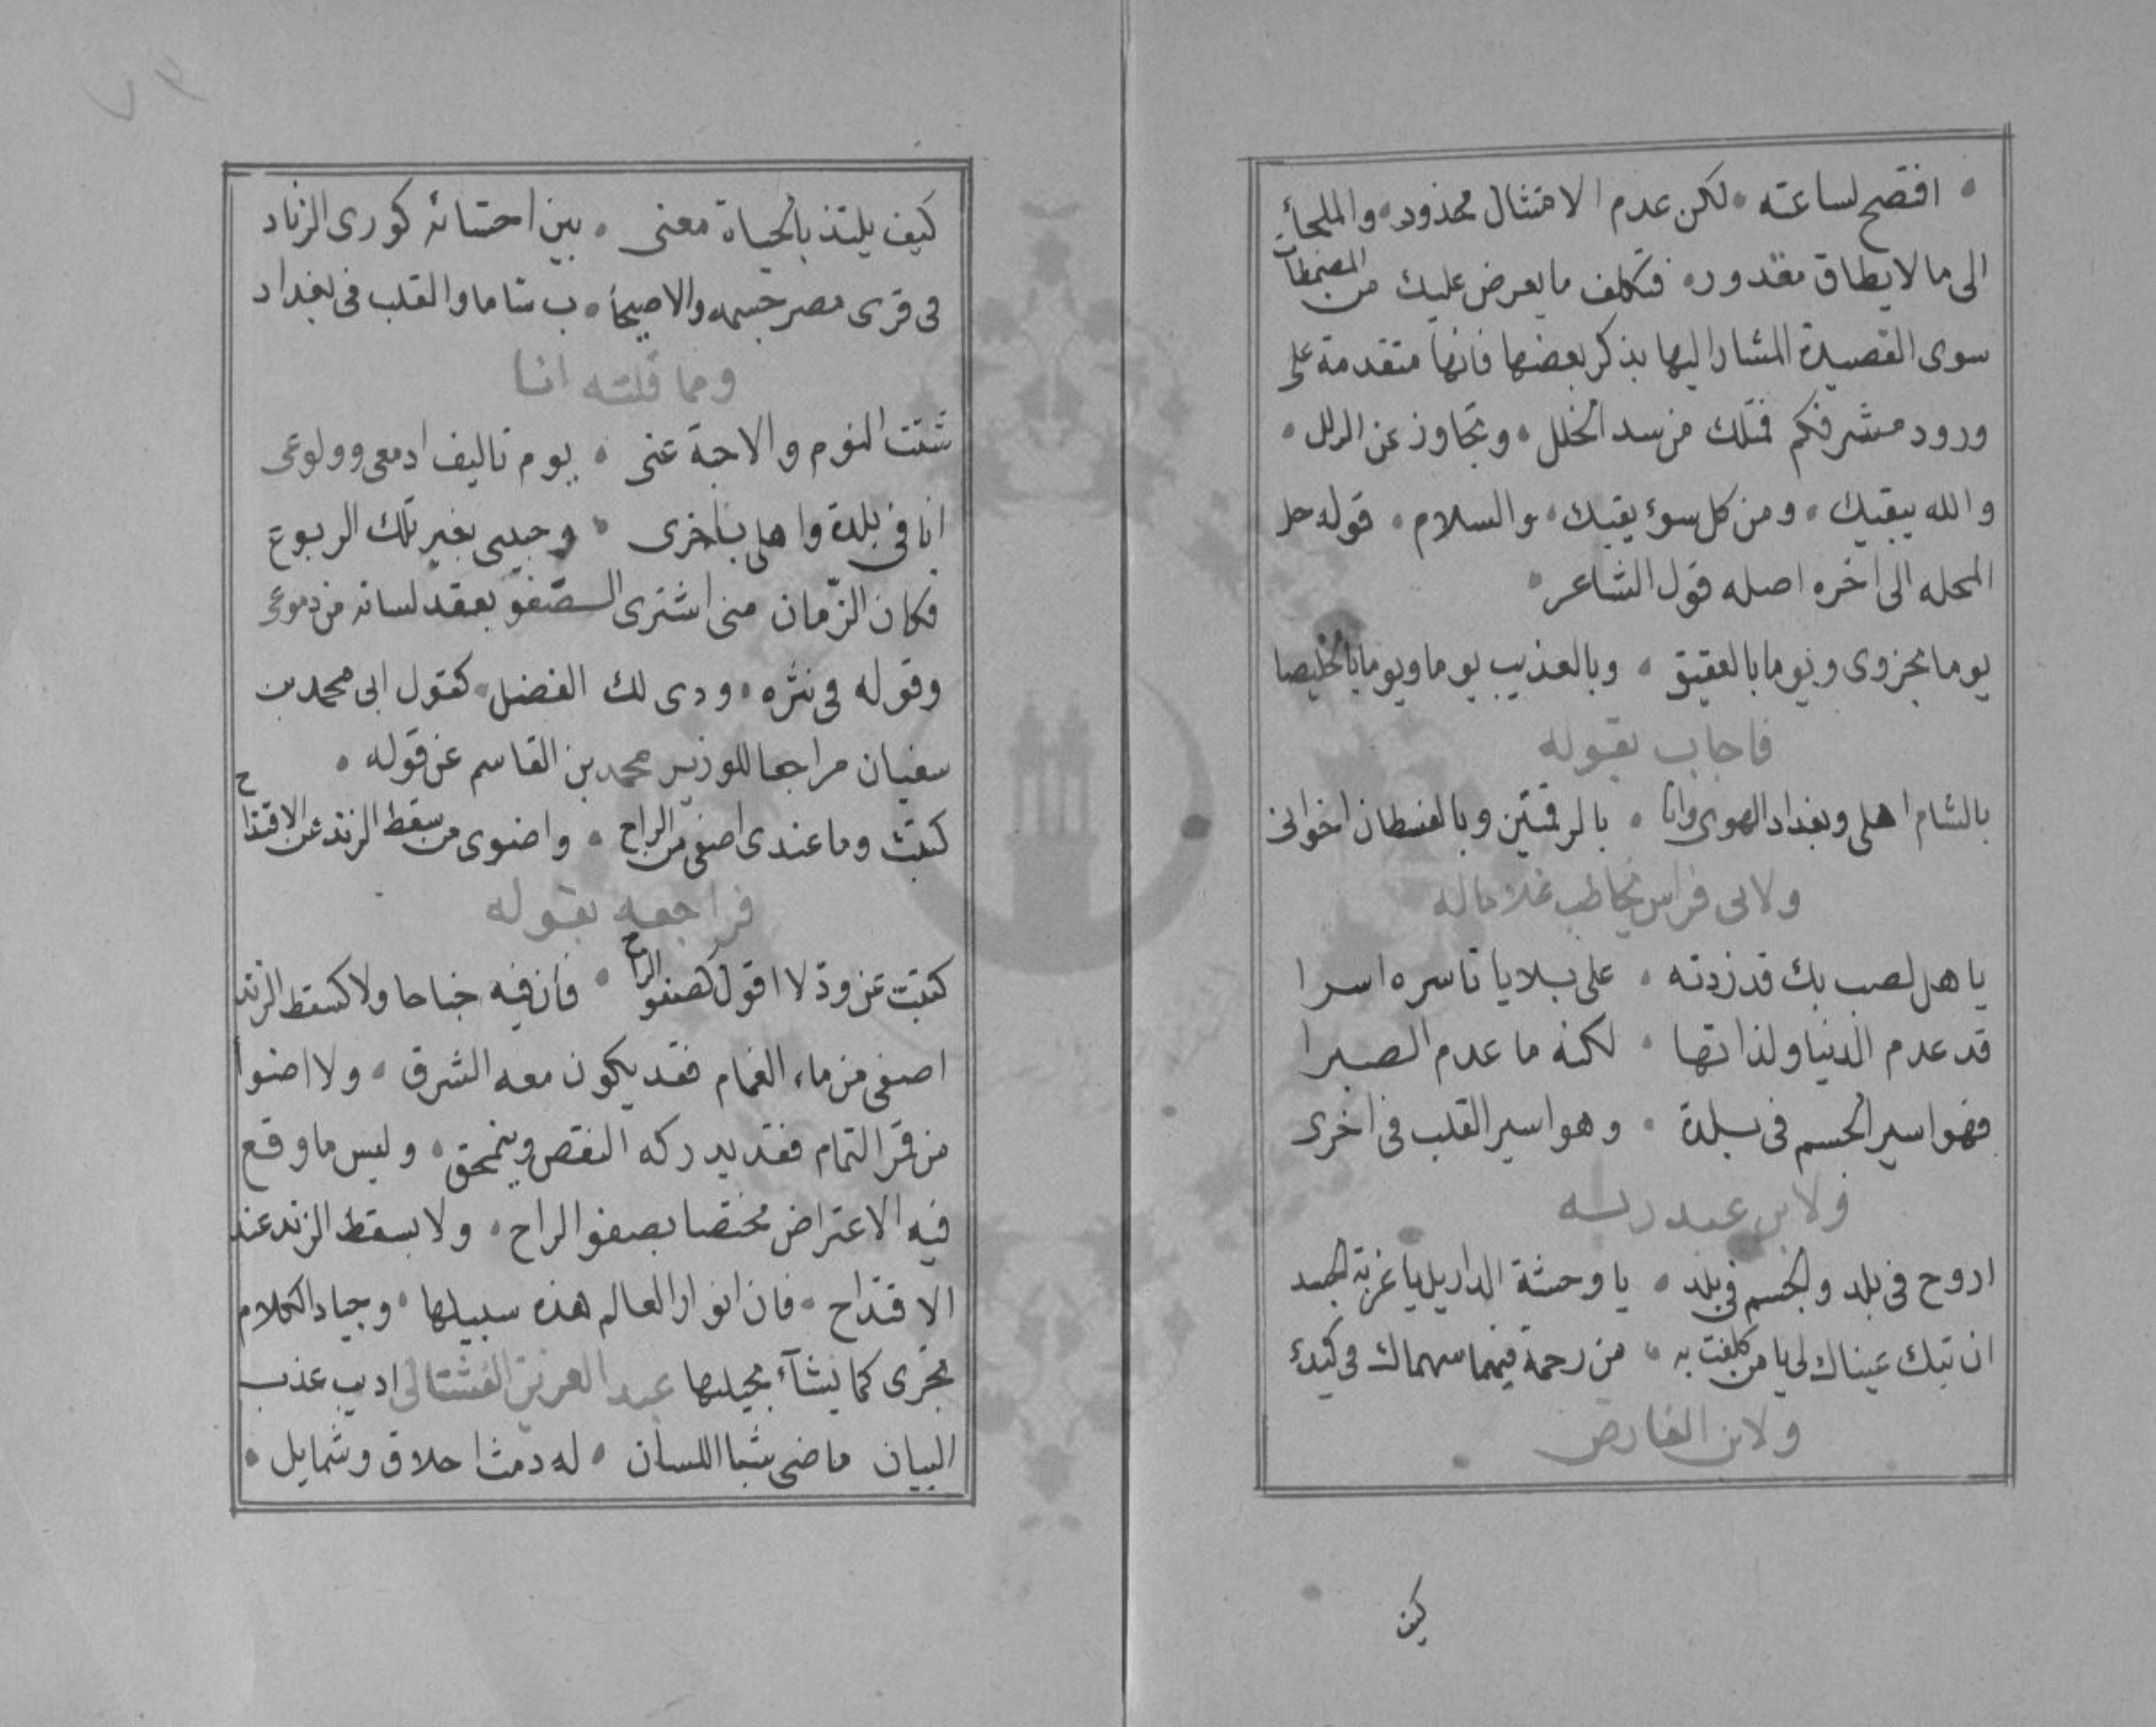 افتضح لساعته • لكن عدم الامتثال محذور • والملجأ
الى ما لا يطاق مقدور • فتكلف ما يعرض عليك من
سوى القصيدة المشار اليها بذكر بعضها فانها متقدمة على
ورود مشرفكم فمثلك من سد الخلل • وتجاوز عن الزلل •
والله يبقيك • ومن كل سوء يقيك • والسلام • قوله حل
المحله الى اخره اصله قول الشاعر •
يوما بحزوى ويوما بالعقيق • وبالعذيب يوما ويوما بالخليصا
فاجاب بقوله
بالشام اهلى وبغداد الهوى وانا • بالرقمتين وبالفسطان اخوانى
ولابى فراس يخاطب غلاما له
يا هل لصب بك قد زدته • على بلايا تاسره اسرا
قد عدم الدنيا ولذاتها • لكنه ما عدم الصبرا
فهو اسير الجسم فى بلدة • وهو اسير القلب فى اخرى
ولابن عبد ربه
اروح فى بلد والجسم فى بلد • يا وحشة الدار بل يا غربة الجسد
ان تبك عيناك لى يا من كلفت به • من رحمة فيهما سهماك فى كبدى
ولابن الفارض
كيف
٧٣
كيف يلتذ بالحياة معنى • بين احشائه كورى الزناد
فى قرى مصر جسمه والاصيحا • ب شاما والقلب فى بغداد
ومما قلته انا
شتت النوم والاحبة عنى • يوم تاليف ادمعى وولوعى
انا فى بلدة واهلى باخرى • وحبيبى بغير تلك الربوع
فكان الزمان منى اشترى الصفو بعقد لسانه من دموعى
وقوله فى نثره • ودى لك الفضل • كقول ابى محمد بن
سفيان مراجعا للوزير محمد بن القاسم عن قوله •
كتبت وما عندى اصفى من الراح • واضوى من سقط الزند عن الاقتداح
فراجعه بقوله
كتبت عن ود لا اقول كصفو الراح • فان فيه جناحا ولا كسقط الزند
اصفى من ماء الغمام فقد يكون معه الشرق • ولا اضوا
من قمر التمام فقد يدركه النقص وينمحق • وليس ما وقع
فيه الاعتراض مختصا بصفو الراح • ولا بسقط الزند عند
الاقتداح • فان انوار العالم هذه سبيلها • وجياد الكلام
تجرى كما يشاء مجيلها عبد العزيز الفشتالى اديب عذب
البيان ماضى شبا اللسان • له دمث اخلاق وشمايل •